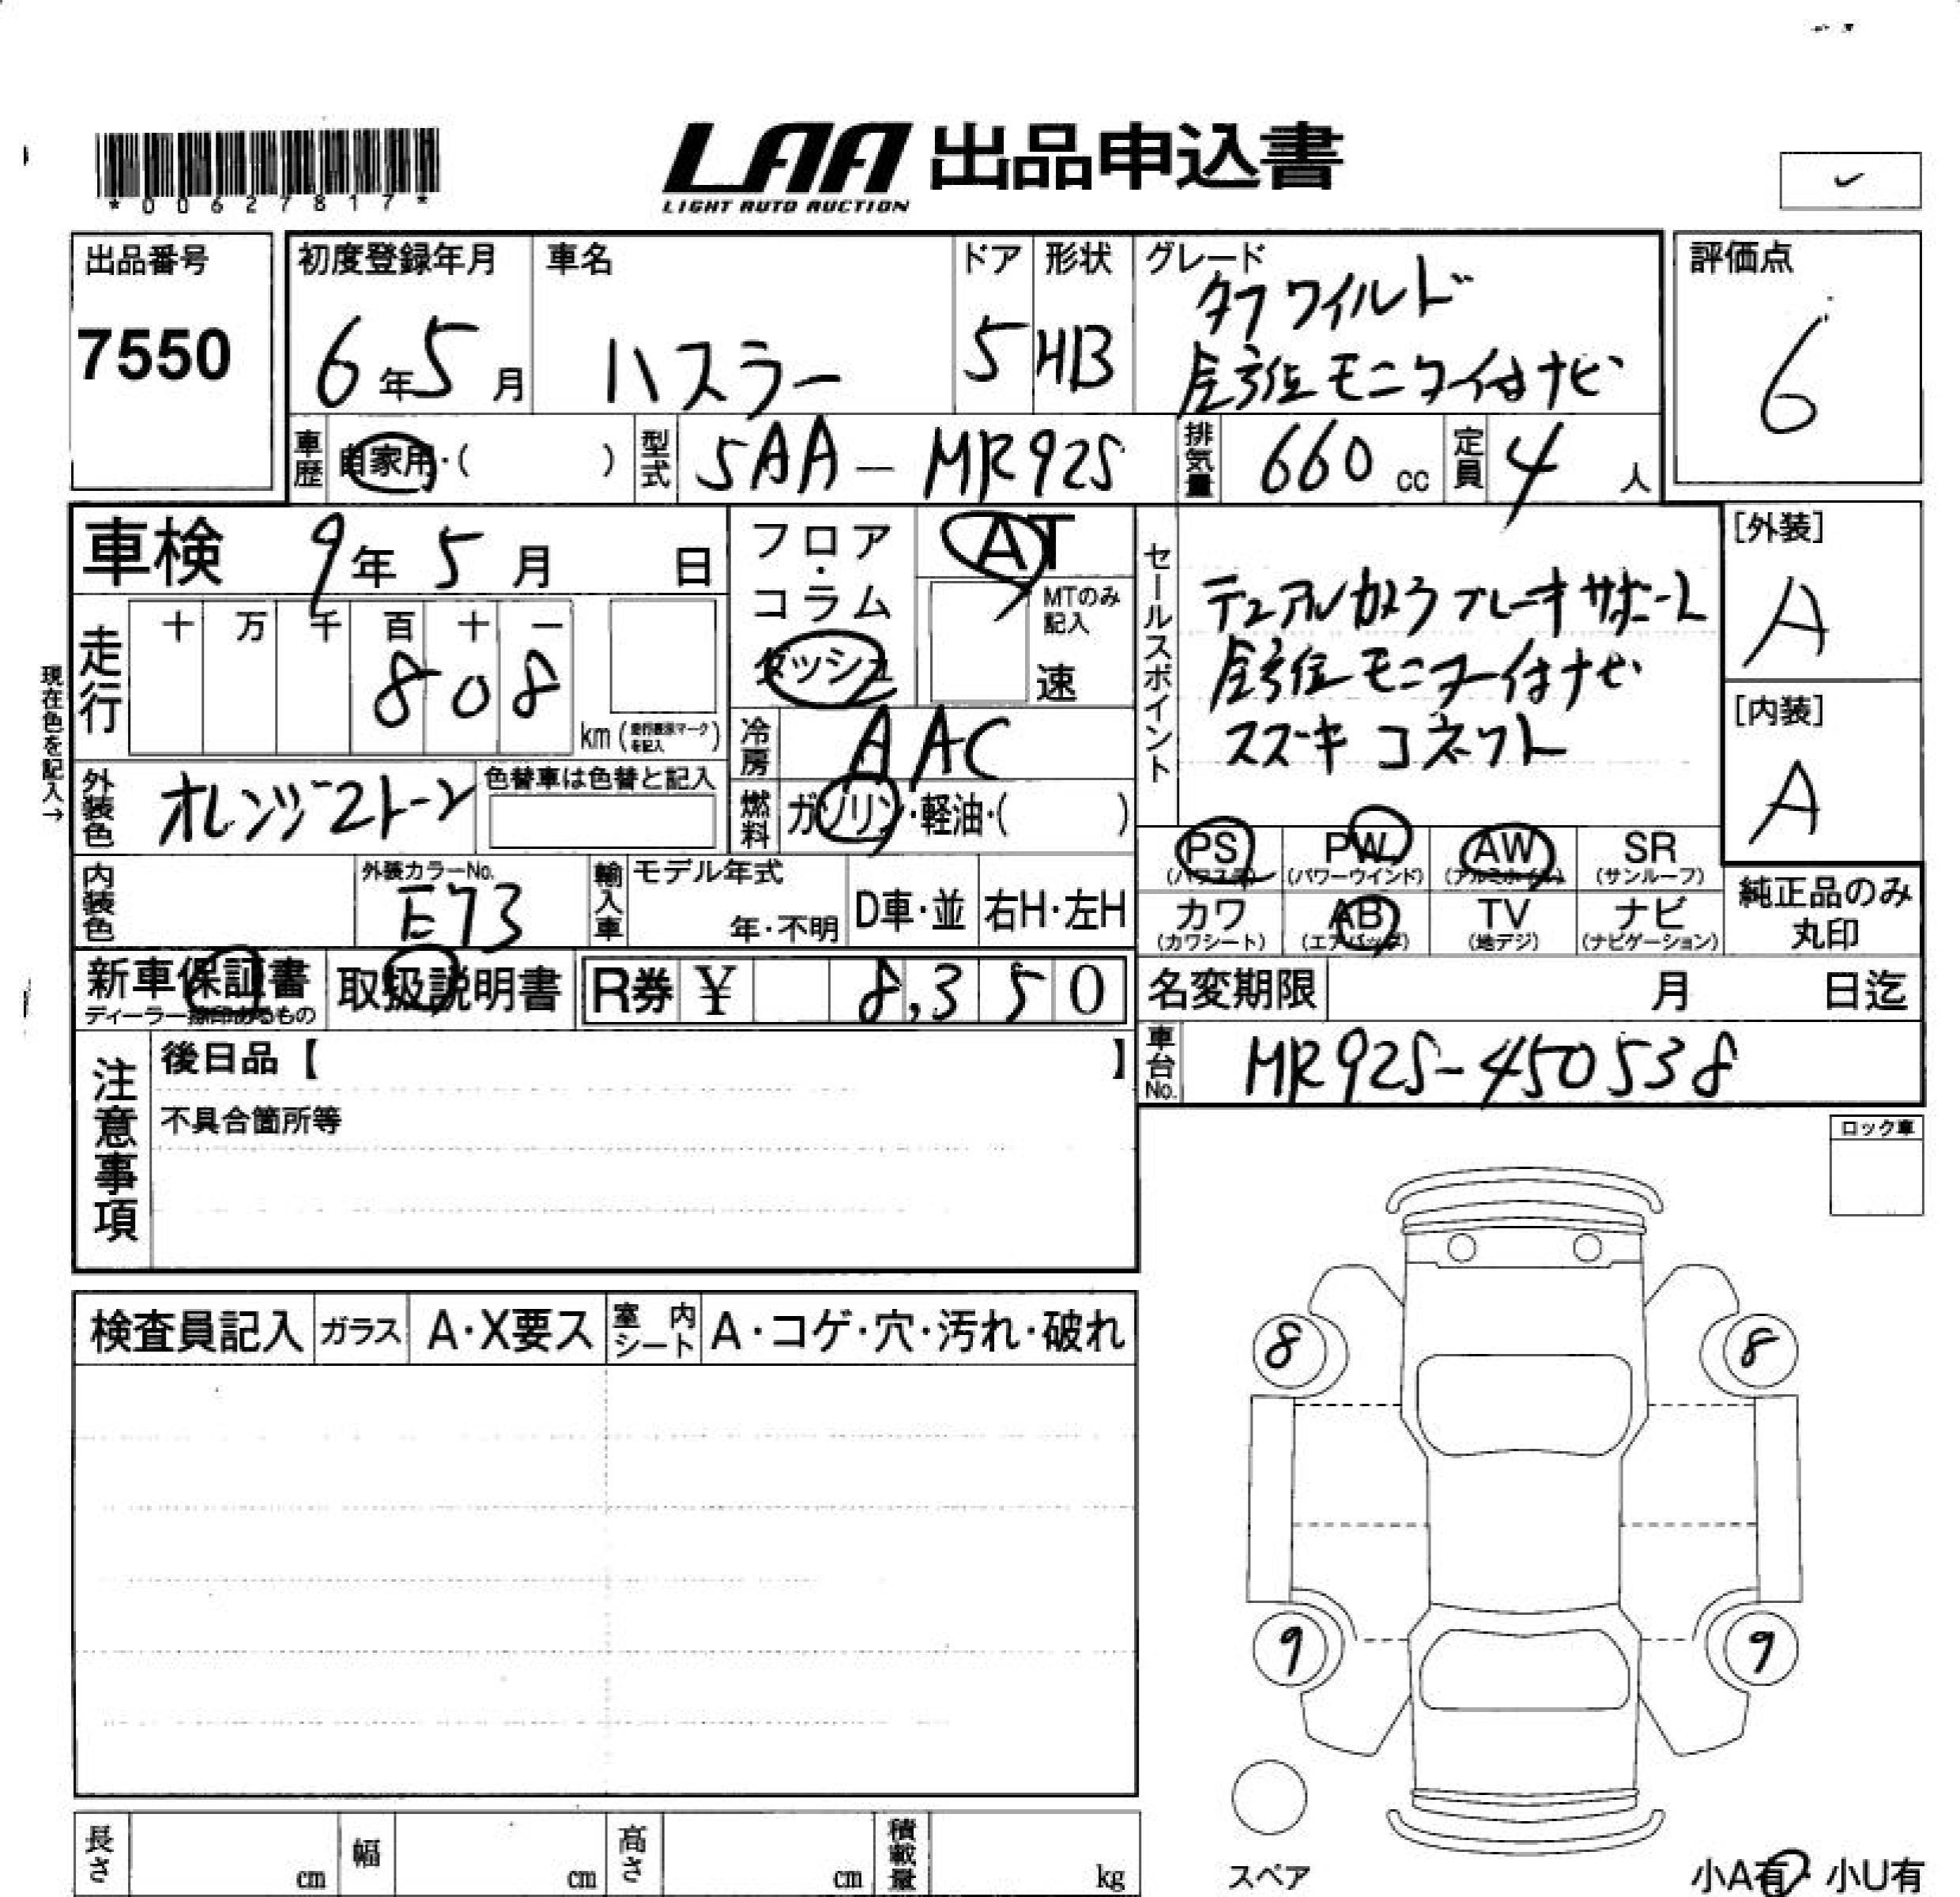 *00627817*
LAA 出品申込書
LIGHT AUTO AUCTION
出品番号
7550
初度登録年月
6年5月
車名
ハスラー
ドア
5
形状
HB
グレード
タフワイルド
全方位モニター付ナビ
評価点
6
車歴
自家用・( )
型式
5AA-MR92S
排気量
660 cc
定員
4人
車検 9年5月 日
走行
十 万 千 百 十 一
808
km (走行表示マークを記入)
現在色を記入→
フロア・コラム
ダッシュ
AT
MTのみ記入
速
冷房
AAC
燃料
ガソリン・軽油・( )
セールスポイント
デュアルカメラブレーキサポート
全方位モニター付ナビ
スズキコネクト
[外装]
A
[内装]
A
外装色
オレンジ2トーン
色替車は色替と記入
内装色
外装カラーNo.
E73
輸入車
モデル年式
年・不明
D車・並
右H・左H
PS PW AW SR
(パワステ) (パワーウインド) (アルミホイル) (サンルーフ)
カワ AB TV ナビ
(カワシート) (エアバッグ) (地デジ) (ナビゲーション)
純正品のみ
丸印
新車保証書
ディーラー捺印あるもの
取扱説明書
R券 ¥ 8,350
名変期限 月 日迄
車台No.
MR92S-450538
注意事項
後日品【 】
不具合箇所等
ロック車
検査員記入
ガラス
A・X要ス
室内シート
A・コゲ・穴・汚れ・破れ
8 8
9 9
スペア
小A有・小U有
長さ cm
幅 cm
高さ cm
積載量 kg